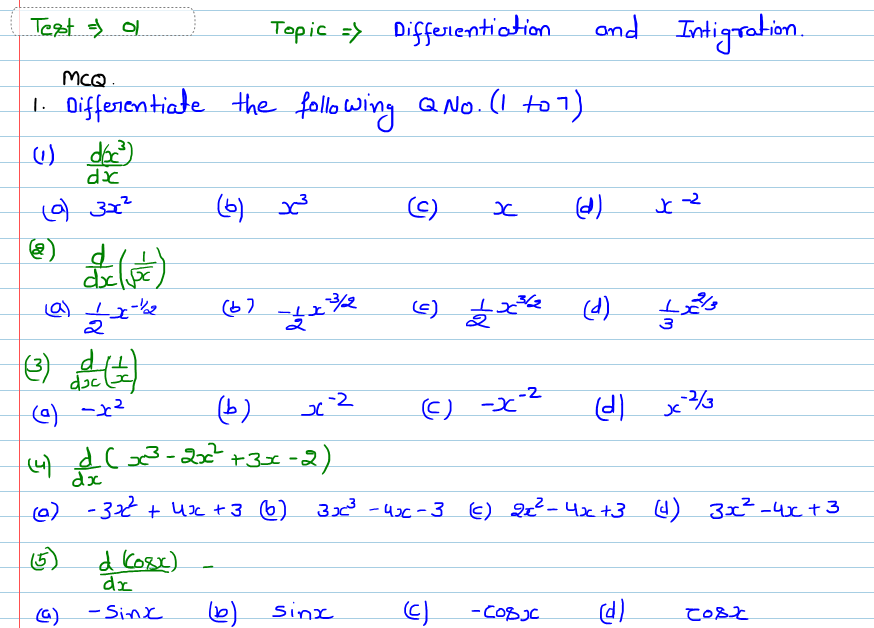 Test ⇒ 01 Topic ⇒ Differentiation and Intigration.
MCQ.
1. Differentiate the following Q No. (1 to 7)
(1) d(x³)/dx
(a) 3x² (b) x³ (c) x (d) x⁻²
(2) d/dx (1/√x)
(a) 1/2 x^(-1/2) (b) -1/2 x^(-3/2) (c) 1/2 x^(3/2) (d) 1/3 x^(2/3)
(3) d/dx (1/x)
(a) -x² (b) x⁻² (c) -x⁻² (d) x^(-2/3)
(4) d/dx (x³ - 2x² + 3x - 2)
(a) -3x² + 4x + 3 (b) 3x³ - 4x - 3 (c) 2x² - 4x + 3 (d) 3x² - 4x + 3
(5) d(cosx)/dx -
(a) -sinx (b) sinx (c) -cosx (d) cosx